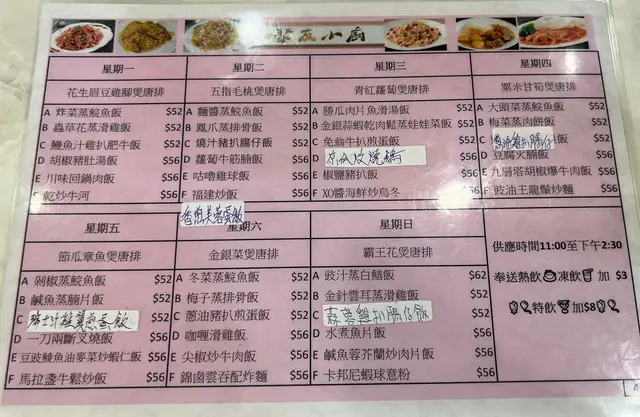 小廚
星期一
花生眉豆雞腳煲唐排
A 炸菜蒸鯇魚飯 $52
B 蟲草花蒸滑雞飯 $52
C 鰻魚汁雞扒肥牛飯 $52
D 胡椒豬肚湯飯 $56
E 川味回鍋肉飯 $56
F 乾炒牛河 $56
星期二
五指毛桃煲唐排
A 麵醬蒸鯇魚飯 $52
B 鳳爪蒸排骨飯 $52
C 燒汁豬扒腸仔飯 $52
D 蘿蔔牛筋腩飯 $56
E 咕嚕雞球飯 $56
F 福建炒飯 $56
星期三
青紅蘿蔔煲唐排
A 勝瓜肉片魚滑湯飯 $52
B 金銀蒜蝦乾肉鬆蒸娃娃菜飯 $52
C 免翁牛扒煎蛋飯 $52
D $56
E 椒鹽豬扒飯 $56
F XO醬海鮮炒烏冬 $56
星期四
粟米甘筍煲唐排
A 大頭菜蒸鯇魚飯 $52
B 梅菜蒸肉餅飯 $52
雞扒腸仔 $52
D 豆腐火腩飯 $56
E 九層塔胡椒爆牛肉飯 $56
F 豉油王龍鬚炒麵 $56
星期五
節瓜章魚煲唐排
A 剁椒蒸鯇魚飯 $52
B 鹹魚蒸腩片飯 $52
C 瑞士汁雞翼煎蛋飯 $52
D 一刀兩斷叉燒飯 $56
E 豆豉鯪魚油麥菜炒蝦仁飯 $56
F 馬拉盞牛鬆炒飯 $56
香煎芙蓉蛋飯
星期六
金銀菜煲唐排
A 冬菜蒸鯇魚飯 $52
B 梅子蒸排骨飯 $52
C 蔥油豬扒煎蛋飯 $52
D 咖喱滑雞飯 $56
E 尖椒炒牛肉飯 $56
F 錦鹵雲吞配炸麵 $56
星期日
霸王花煲唐排
A 豉汁蒸白鱔飯 $62
B 金針雲耳蒸滑雞飯 $52
C 蒜蓉雞扒腸仔飯 $52
D 水煮魚片飯 $56
E 鹹魚蓉芥蘭炒肉片飯 $56
F 卡邦尼蝦球意粉 $56
供應時間11:00至下午2:30
奉送熱飲 凍飲 加 $3
特飲 加$8